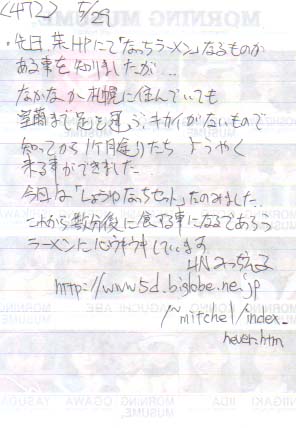 5/29
・先日、某HPにて「なっちラーメン」なるものが
ある事を知りましたが...
なかなか札幌に住んでいても
室蘭まで足を運ぶキカイがないもので
知ってから1ヶ月辺りたち ようやく
来る事ができました。
今日は「しょうゆなっちセット」たのみました。
これから数分後に食する事になるであろう
ラーメンに心ウキウキしています
HN みっちぇる
http://www5d.biglobe.ne.jp
/~mitchel/index_
never.htm
MORNING MUSUME
IIDA
ABE
NIIGAKI IIDA OGAWA YASUDA
MUSUME